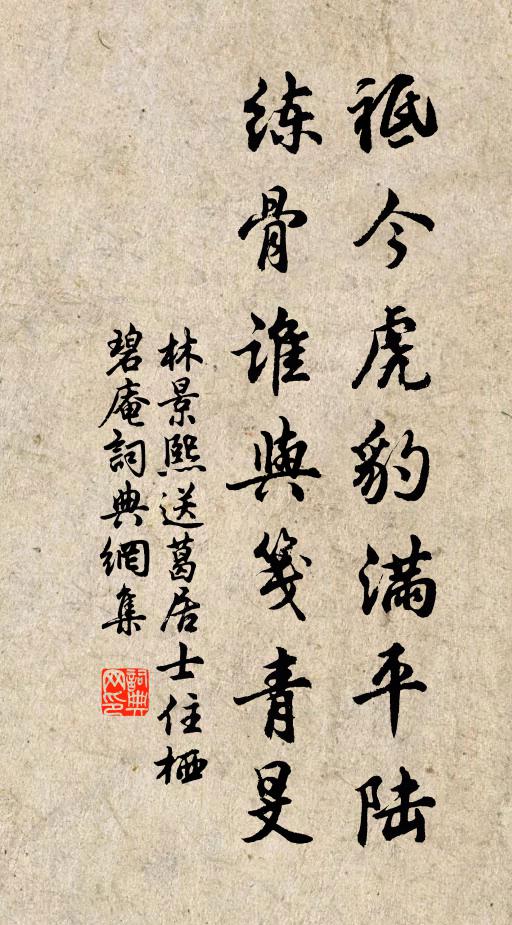 祗今虎豹满平陆
练骨谁與箋青旻
林景熙送葛居士住栖
碧庵詞典網集
詞典网印